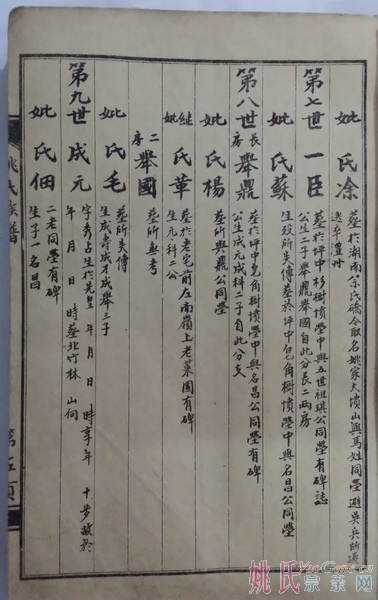 妣氏涂 墓於湖南宗氏橋今取名姚家大墳山與馬姓同塋避吳兵所
逃卒澧州
第七世 一臣 墓於坪中杉樹墳塋中與五世祖琪公同塋有碑誌
公生二子舉鼎舉國自此分長二兩房
妣氏蘇 生歿所失傳墓於坪中皂角樹墳塋中與名昌公同塋
第八世 長房 舉鼎 墓於坪中皂角樹墳塋中與名昌公同塋有碑
公生成元成科二子自此分支
妣氏楊 墓所與鼎公同塋
繼妣氏革 墓於老宅前左南嶺上老菜園有碑
生元科二公
二房 舉國 墓所無考
妣氏毛 墓所失傳
生成壽成才成舉三子
第九世 成元 字秀占生於先皇 年 月 日 時享年 十岁故於
年 月 日 時墓北竹林 山向
妣氏佃 二老同塋有碑
生子一名昌
姚氏族譜
第五頁
姚氏宗亲网